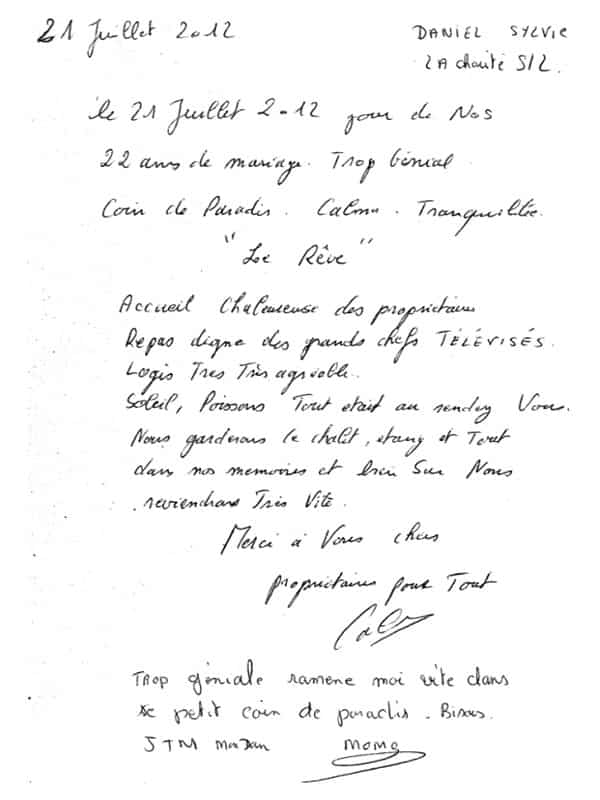 21 Juillet 2012
DANIEL SYLVIE
LA charité S/L.
le 21 Juillet 2012 jour de Nos
22 ans de mariage. Trop Génial
Coin de Paradis. Calme. Tranquillité.
"Le Rêve"
Accueil Chaleureuse des propriétaires
Repas digne des grands chefs TÉLÉVISÉS.
Logis Tres Très agréable.
Soleil, Poissons Tout etait au rendez Vous.
Nous garderons le chalet, etang et Tout
dans nos memoires et bien Sur Nous
reviendrons Très Vite.
Merci à Vous chers
propriétaires pour Tout
TROP géniale ramene moi vite dans
ce petit coin de paradis. Bisous.
JTM Mon Dan MOMO